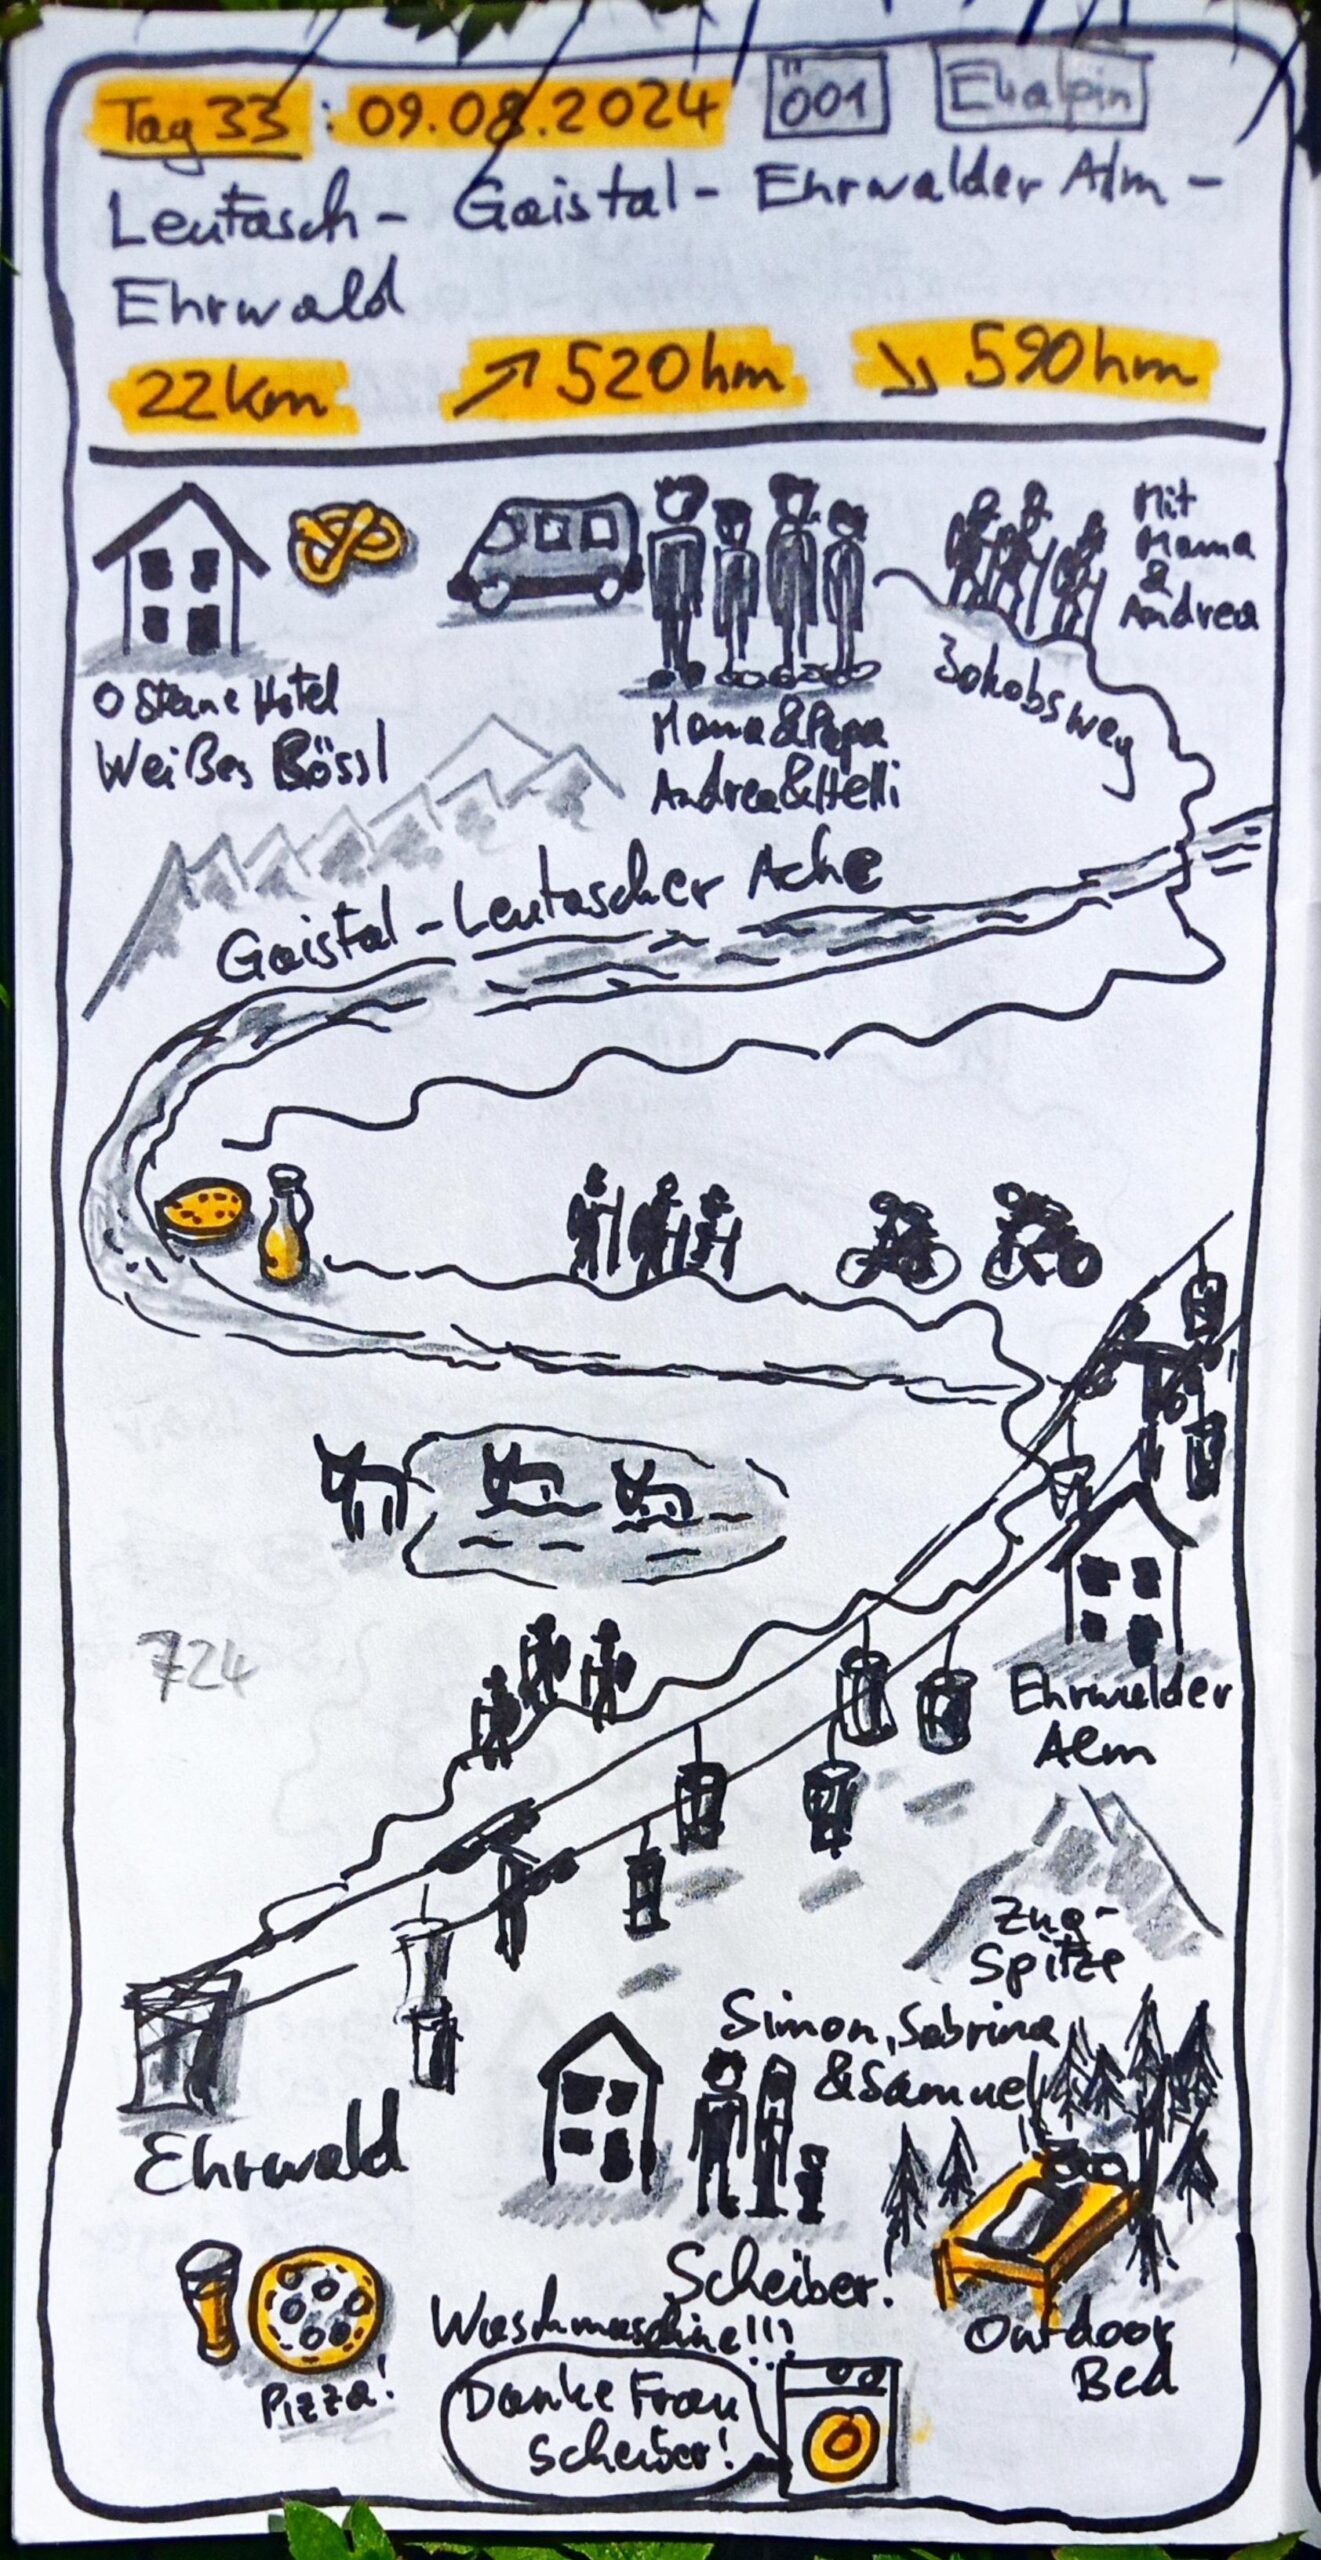 Tag 33 : 09.08.2024 Ö01 E4alpin
Leutasch - Gaistal - Ehrwalder Alm -
Ehrwald
22km ↗ 520hm ↘ 590hm
Mit
Mama
&
Andrea
Jakobsweg
Hotel
Weißes Rössl
Mama & Papa
Andrea & Helli
Gaistal - Leutascher Ache
724
Ehrwalder
Alm
Zug-
Spitze
Simon, Sabrina
& Samuel
Ehrwald
Scheiber!
Waschmaschine!!!
Outdoor
Bed
Pizza!
Danke Frau
Scheiber!